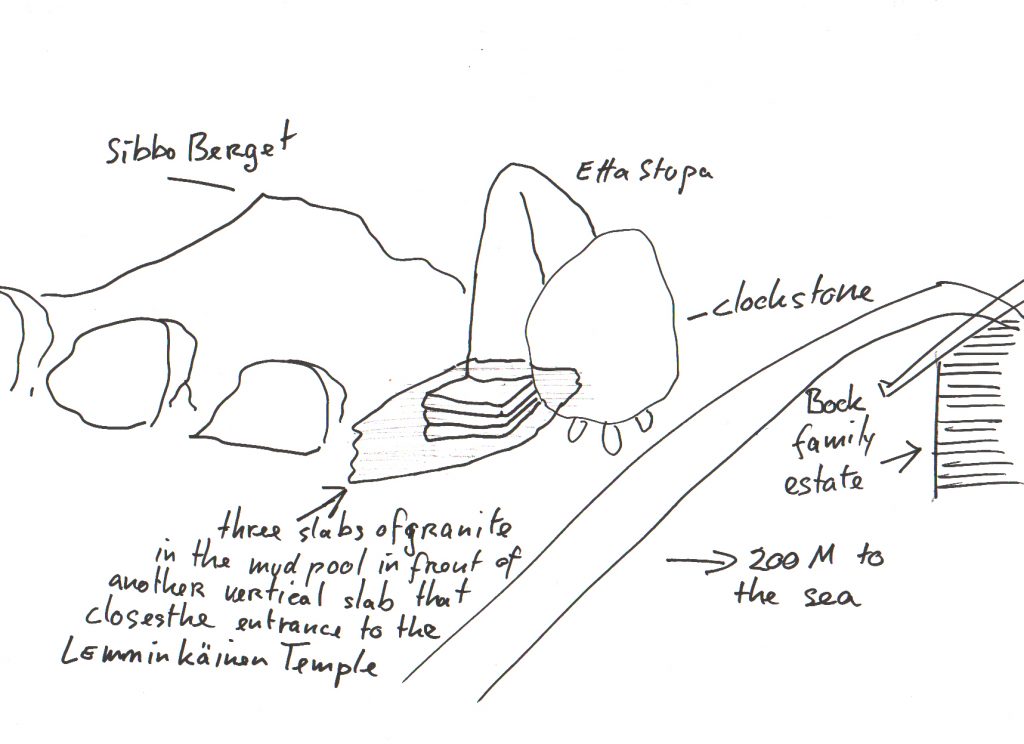 Sibbo Berget
Etta Stopa
clockstone
Bock
family
estate
200 M to
the sea
three slabs of granite
in the mud pool in front of
another vertical slab that
closesthe entrance to the
Lemminkäinen Temple